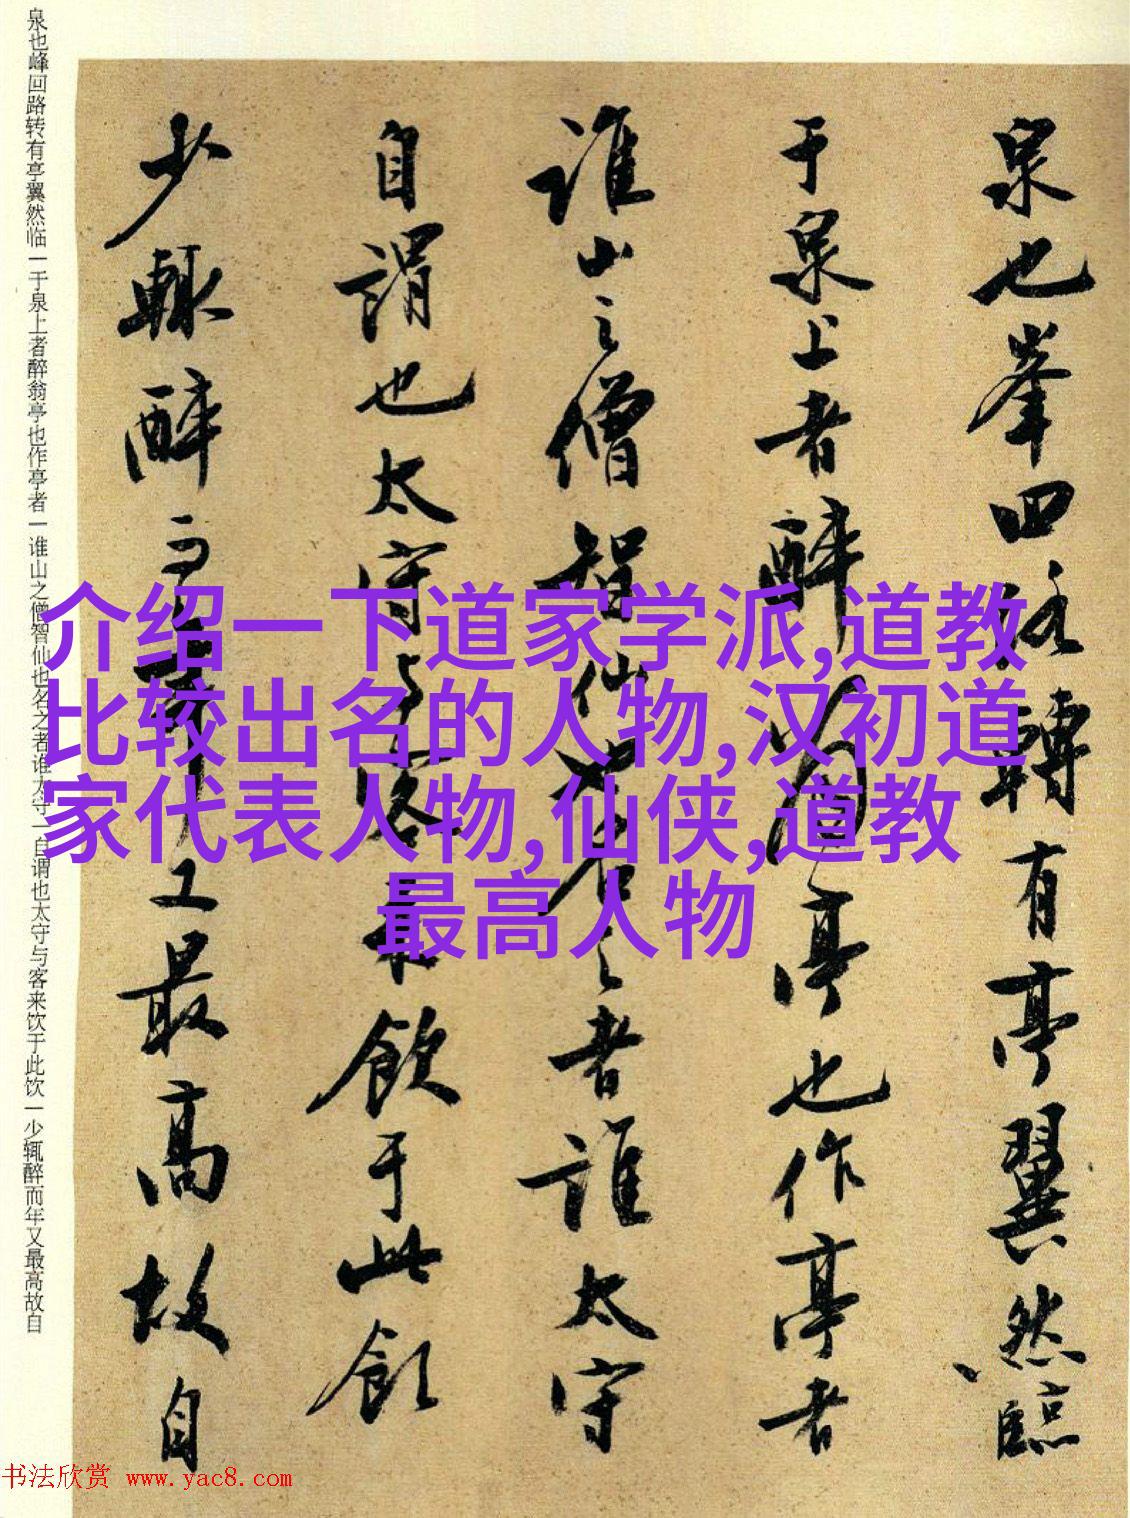 泉也峰回路转有亭翼然临一于泉上者醉翁亭也作亭者一谁山之僧智仙也名之者谁太守一自谓也太守与客来饮于此饮一少辄醉而年又最高故自
泉也峯回路轉有亭翼然臨
于泉上者醉翁亭也作亭者
誰山之僧智仙也名之者誰太守
自謂也太守与客来飲于此飲
少輒醉而年又最高故自
介绍一下道家学派,道教
比较出名的人物,汉初道
家代表人物,仙侠,道教
最高人物
书法欣赏 www.yac8.com